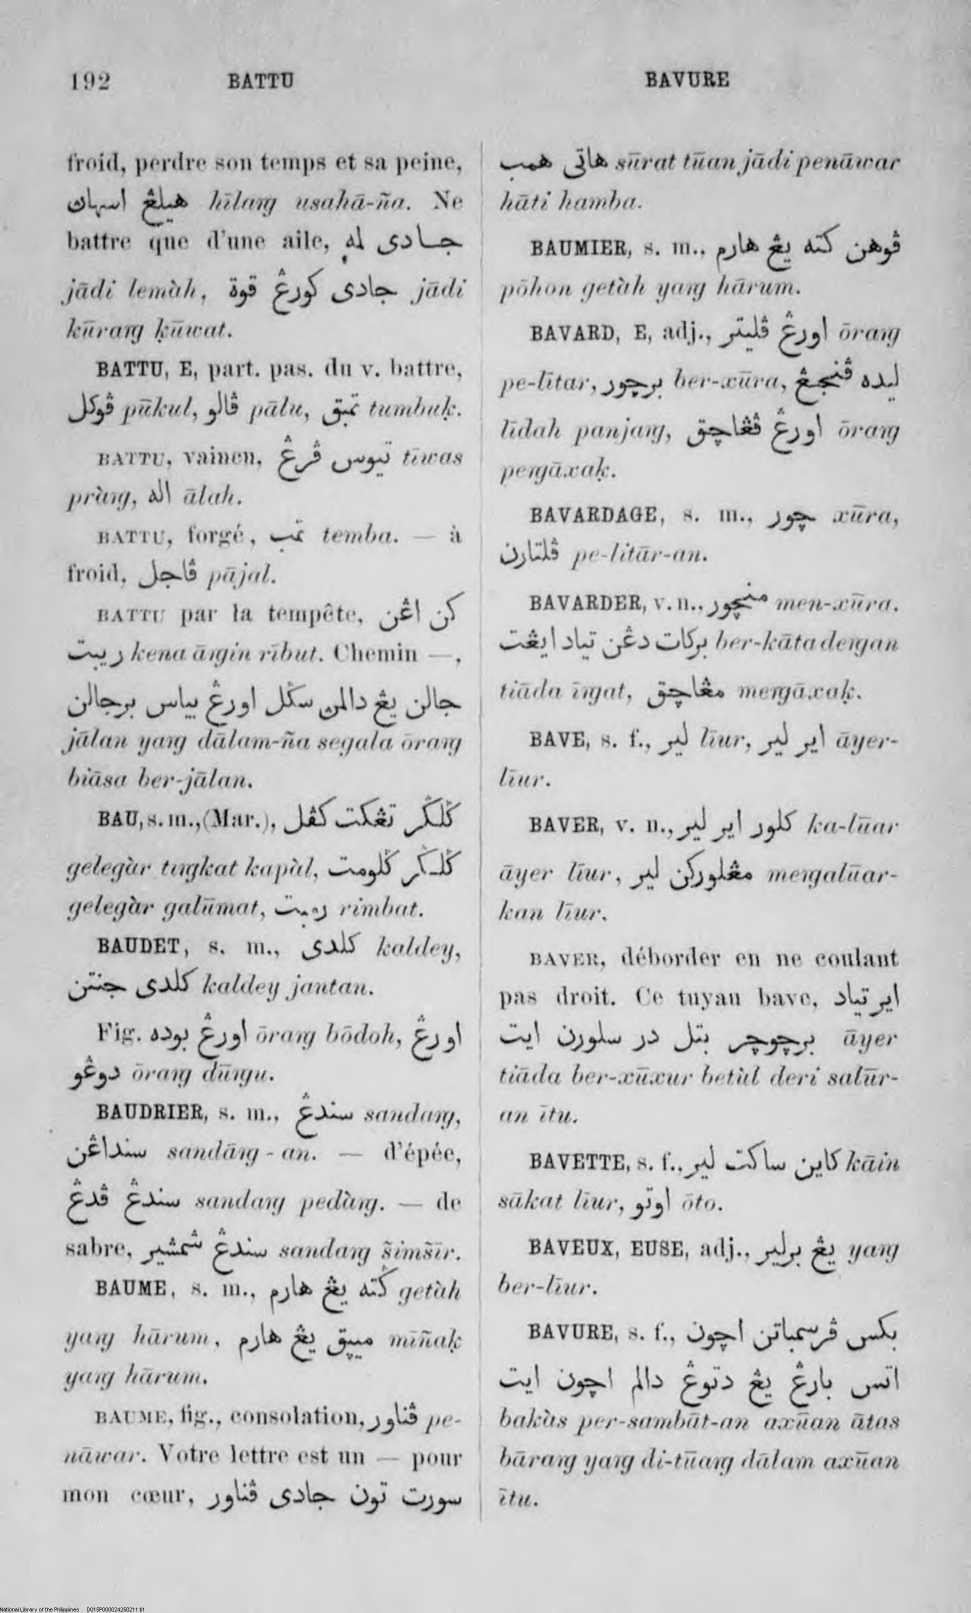 192 BATTU BAVURE
froid, perdre son temps et sa peine,
هيلڠ اسهاڽ hīlang usahā-ña. Ne
battre que d'une aile, جادى لمه
jādi lemàh, جادى كورڠ قوة jādi
kūrang ḳūwat.
BATTU, E, part. pas. du v. battre,
ڤوكل pūkul, ڤالو pālu, تمبق tumbuḳ.
BATTU, vaincu, تيوس ڤرڠ tīwas
pràng, اله ālah.
BATTU, forgé, تمب temba. — à
froid, ڤاجل pājal.
BATTU par la tempête, كن اڠن
ريبت kena āngin rībut. Chemin —,
جالن يڠ دالمڽ سݢل اورڠ بياس برجالن
jālan yang dālam-ña segala ōrang
biāsa ber-jālan.
BAU, s. m., (Mar.), ݢلݢر تڠكت كڤل
gelegàr tingkat kapàl, ݢلݢر ݢلومت
gelegàr galūmat, رمبت rimbat.
BAUDET, s. m., كلدى kaldey,
كلدى جنتن kaldey jantan.
Fig. اورڠ بوده ōrang bōdoh, اورڠ
دوڠو ōrang dūngu.
BAUDRIER, s. m., سندڠ sandang,
سنداڠن sandāng-an. — d'épée,
سندڠ ڤدڠ sandang pedàng. — de
sabre, سندڠ شمشير sandang šimšīr.
BAUME, s. m., ݢته يڠ هارم getàh
yang hārum, ميڽق يڠ هارم mīñaḳ
yang hārum.
BAUME, fig., consolation, ڤناور pe-
nāwar. Votre lettre est un — pour
mon cœur, سورت تون جادى ڤناور
هاتى همب sūrat tūan jādi penāwar
hāti hamba.
BAUMIER, s. m., ڤوهن ݢته يڠ هارم
pōhon getàh yang hārum.
BAVARD, E, adj., اورڠ ڤليتر ōrang
pe-lītar, برچور ber-xūra, ليده ڤنجڠ
līdah panjang, اورڠ ڤڠاچق ōrang
pengāxaḳ.
BAVARDAGE, s. m., چور xūra,
ڤلتارن pe-litār-an.
BAVARDER, v. n., منچور men-xūra,
بركات دڠن تياد ايڠت ber-kāta dengan
tiāda īngat, مڠاچق mengāxaḳ.
BAVE, s. f., لير līur, اير لير āyer-
līur.
BAVER, v. n., كلور اير لير ka-lūar
āyer līur, مڠلوركن لير mengalūar-
kan līur.
BAVER, déborder en ne coulant
pas droit. Ce tuyau bave, اير تياد
برچوچر بتل در سلورن ايت āyer
tiāda ber-xūxur betùl deri salūr-
an ītu.
BAVETTE, s. f., كاين ساكت لير kāin
sākat līur, اوتو ōto.
BAVEUX, EUSE, adj., يڠ برلير yang
ber-līur.
BAVURE, s. f., بكس ڤرسمباتن اچون
اتس بارڠ يڠ دتوڠ دالم اچون ايت
bakàs per-sambāt-an axūan ātas
bārang yang di-tūang dālam axūan
ītu.
National Library of the Philippines